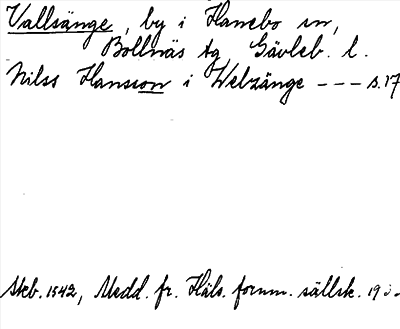 Vallsänge, by i Hanebo sn,
Bollnäs tg Gävleb. l.
Nilss Hansson i Welzänge --- s. 17
Skb. 1542, Medd. fr. Häls. fornm. sällsk. 19